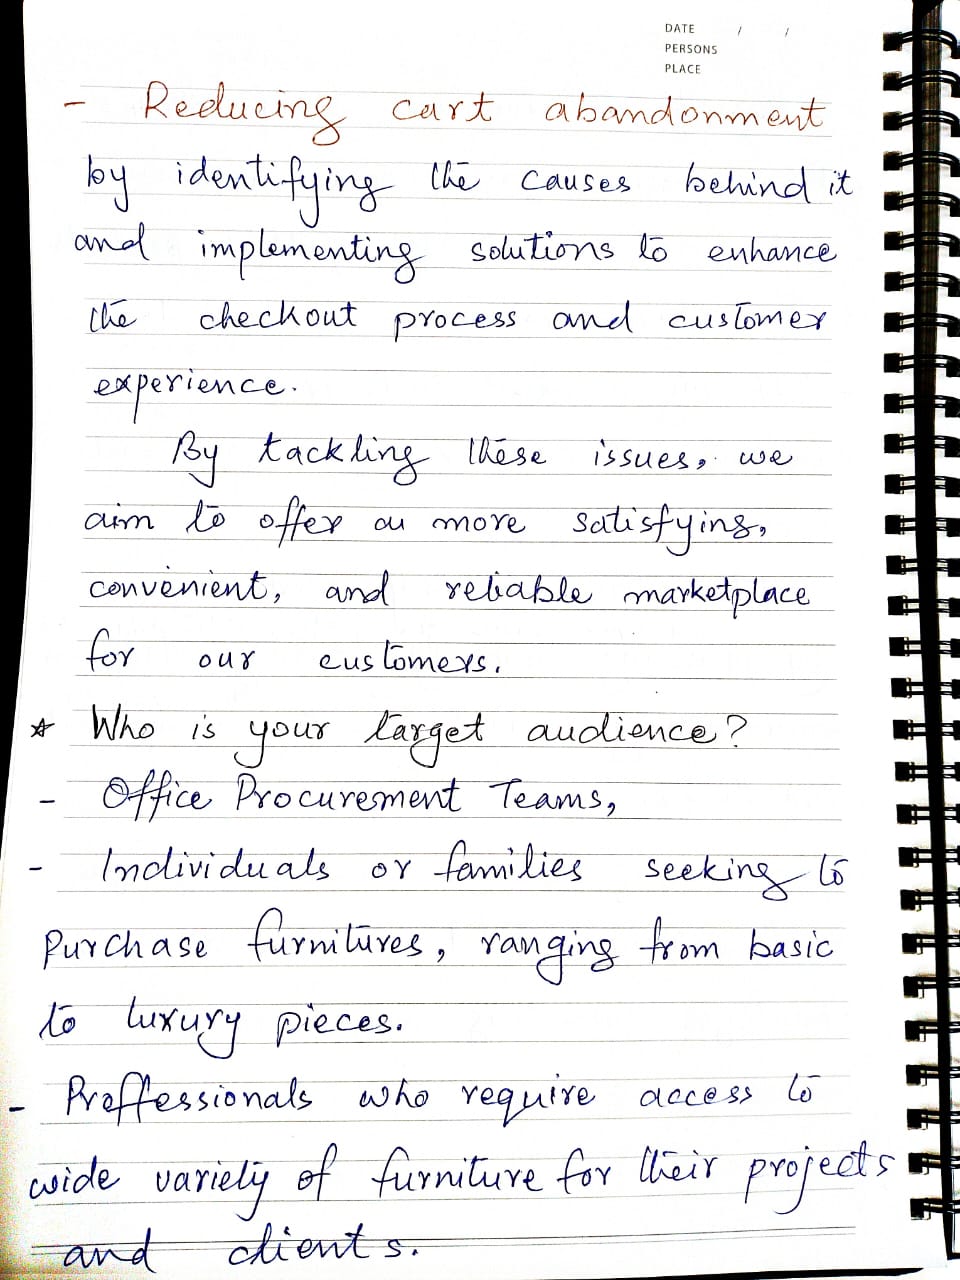 DATE / /
PERSONS
PLACE
- Reducing cart abandonment
by identifying the causes behind it
and implementing solutions to enhance
the checkout process and customer
experience.
By tackling these issues, we
aim to offer a more satisfying,
convenient, and reliable marketplace
for our customers.
☆ Who is your target audience?
- Office Procurement Teams,
- Individuals or families seeking to
Purchase furnitures, ranging from basic
to luxury pieces.
- Proffessionals who require access to
wide variety of furniture for their projects
and clients.